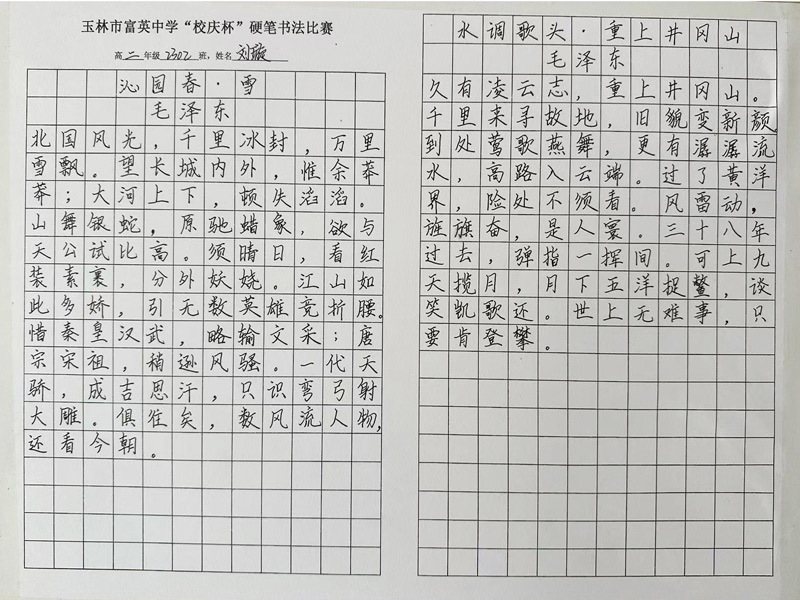 玉林市富英中学“校庆杯”硬笔书法比赛
高二年级2302班，姓名刘璇
沁园春·雪
毛泽东
北国风光，千里冰封，万里
雪飘。望长城内外，惟余莽
莽；大河上下，顿失滔滔。
山舞银蛇，原驰蜡象，欲与
天公试比高。须晴日，看红
装素裹，分外妖娆。江山如
此多娇，引无数英雄竞折腰。
惜秦皇汉武，略输文采；唐
宗宋祖，稍逊风骚。一代天
骄，成吉思汗，只识弯弓射
大雕。俱往矣，数风流人物，
还看今朝。
水调歌头·重上井冈山
毛泽东
久有凌云志，重上井冈山。
千里来寻故地，旧貌变新颜
到处莺歌燕舞，更有潺潺流
水，高路入云端。过了黄洋
界，险处不须看。风雷动，
旌旗奋，是人寰。三十八年
过去，弹指一挥间。可上九
天揽月，月下五洋捉鳖，谈
笑凯歌还。世上无难事，只
要肯登攀。